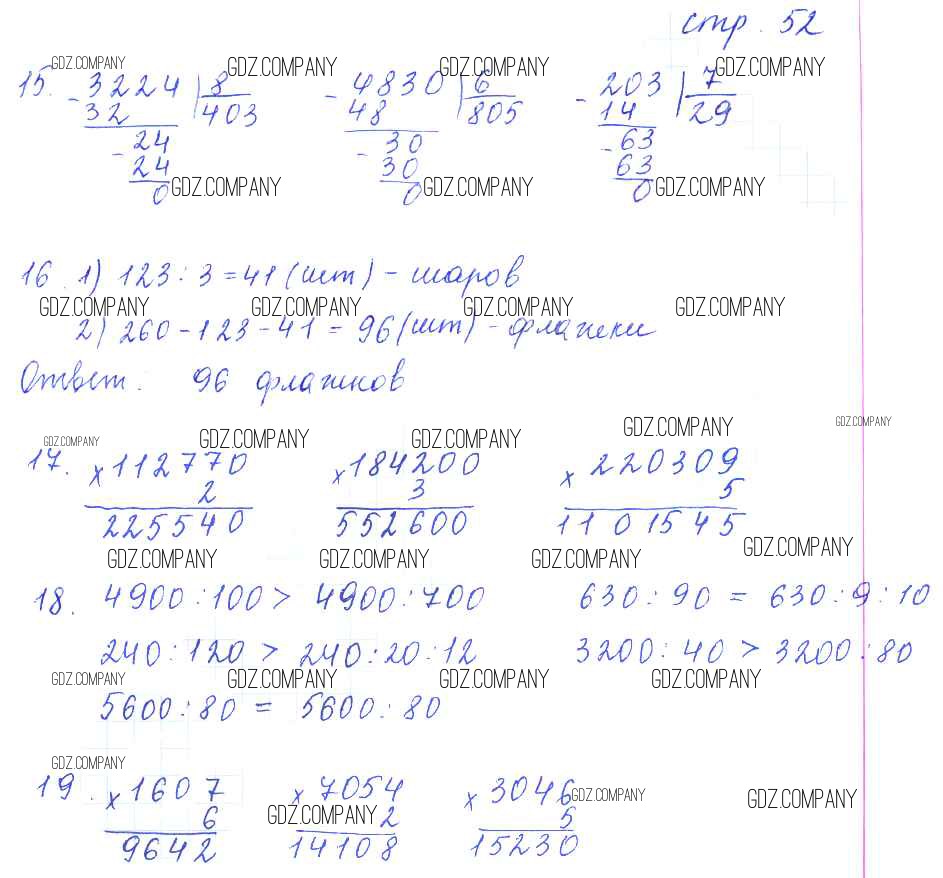 стр. 52
GDZ.COMPANY GDZ.COMPANY GDZ.COMPANY GDZ.COMPANY
15. - 3224 | 8 - 4830 | 6 - 203 | 7
32 403 48 805 14 29
- 24 - 30 - 63
24 30 63
0 GDZ.COMPANY 0 GDZ.COMPANY 0 GDZ.COMPANY
16. 1) 123 : 3 = 41 (шт) - шаров
GDZ.COMPANY GDZ.COMPANY GDZ.COMPANY GDZ.COMPANY
2) 260 - 123 - 41 = 96 (шт) - флажки
Ответ: 96 флажков
GDZ.COMPANY GDZ.COMPANY GDZ.COMPANY GDZ.COMPANY GDZ.COMPANY
17. x 112770 x 184200 x 220309
2 3 5
225540 552600 1101545
GDZ.COMPANY GDZ.COMPANY GDZ.COMPANY GDZ.COMPANY
18. 4900 : 100 > 4900 : 700 630 : 90 = 630 : 9 : 10
240 : 120 > 240 : 20 : 12 3200 : 40 > 3200 : 80
GDZ.COMPANY GDZ.COMPANY GDZ.COMPANY GDZ.COMPANY
5600 : 80 = 5600 : 80
GDZ.COMPANY
19. x 1607 x 7054 x 3046 GDZ.COMPANY GDZ.COMPANY
6 GDZ.COMPANY 2 5
9642 14108 15230